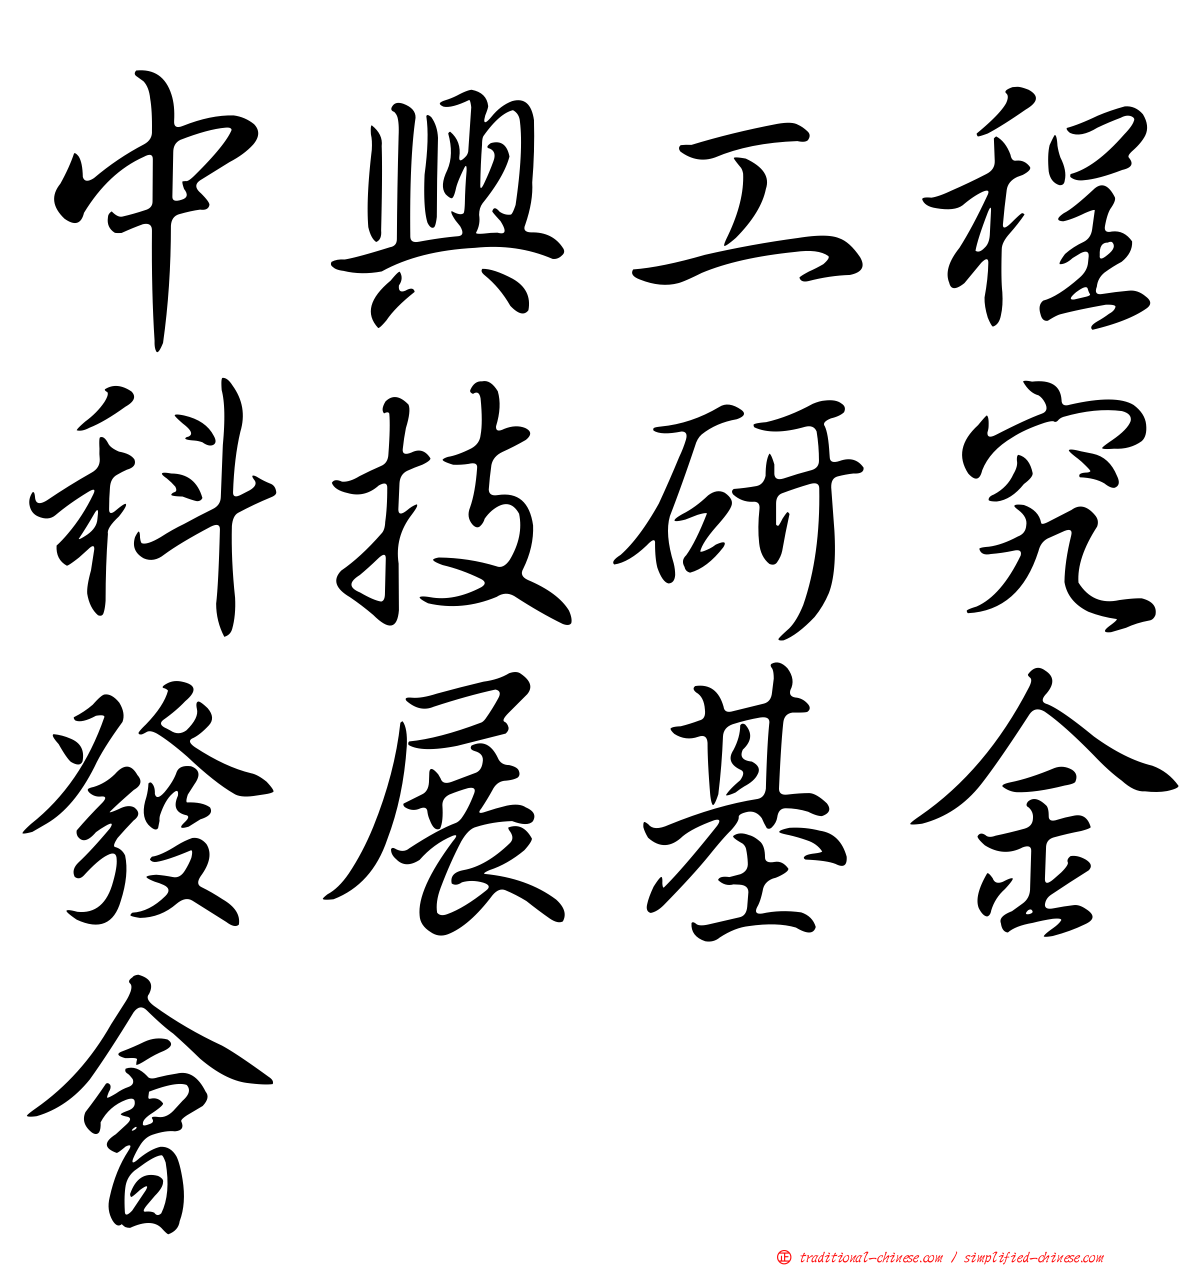 中興工程
科技研究
發展基金
會
正 traditional-chinese.com / simplified-chinese.com